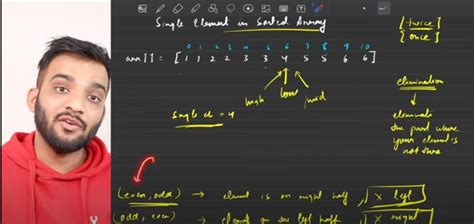 Single Element in Sorted Array
[twice]
[once]
0 1 2 3 4 5 6 7 8 9 10
arr[] = [1 1 2 2 3 3 4 5 5 6 6]
high low mid
Single el = 4
elimination
eliminate
the part where
your element is
not there
(even, odd) → element is on right half, × left
(odd, even) → element on the left half × right